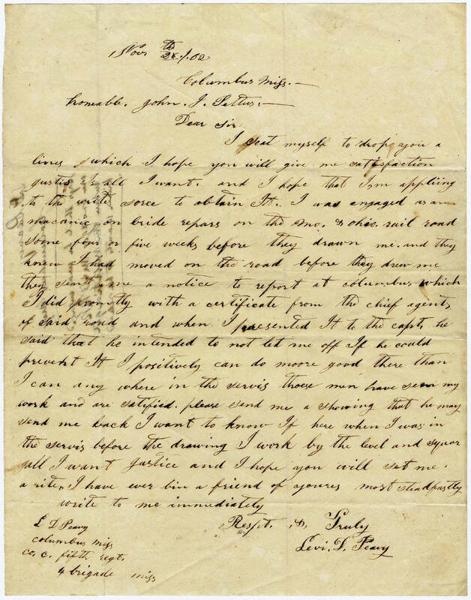 Nov th 24/62
Columbus Miss.
honeabb. John. J. Pettus.
Dear Sir
I seat myself to drop you a
lines which I hope you will give me satesfaction
justis is all I want. and I hope that I am appliing
to the write sorce to obtain It. I was engaged as an
macanic on bride repars on the Mo. & ohio rail road
some four or five weeks before they drawn me. and they
knew I had moved on the road before they drew me
they sent me a notice to report at columbus which
I did promptly with a certificate from the chief agent,
of said road and when I presented It to the capt. he
said that he intended to not let me off If he could
prevent It I positively can do moore good there than
I can any where in the servis those men have seen my
work and are satified. please send me a showing that he may
send me back I want to know If here when I was in
the servis before the drawing I work by the level and squar
all I want Justice and I hope you will set me
a rite, I have ever bin a friend of youres most steadfastly
write to me immediately
Respt. & Truly
Levi. D. Peavy
L D Peavy
columbus miss
co, C. fifth regt,
4 brigade miss